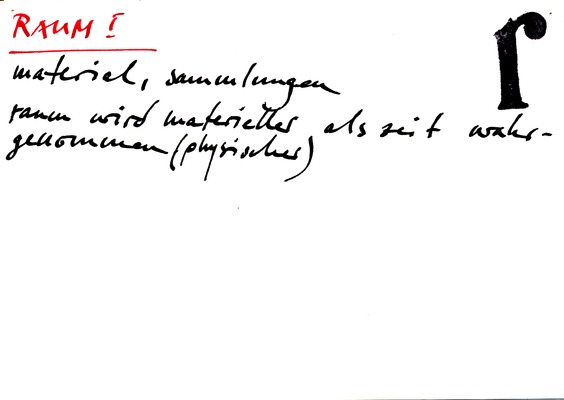 RAUM I
r
material, sammlungen
raum wird materieller als zeit wahr-
genommen (physischer)